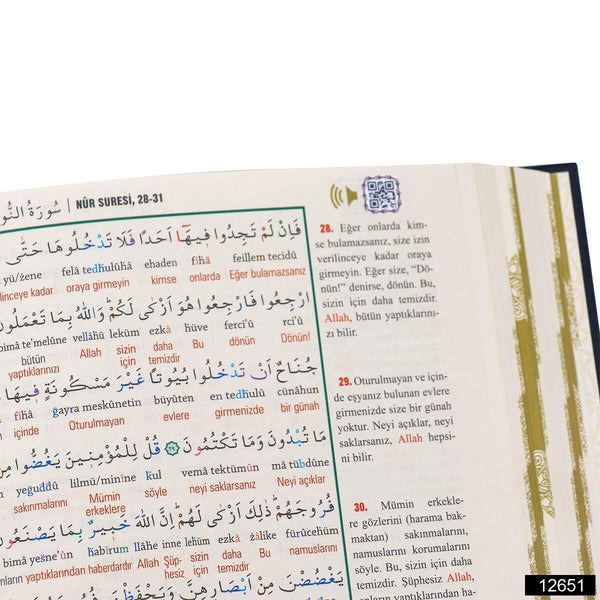 سُورَةُ النُّو | NÛR SURESİ, 28-31
فَاِنْ لَمْ تَجِدُوا فٖيهَٓا اَحَدًا فَلَا تَدْخُلُوهَا حَتّٰى
yü/żene felâ tedhulûhâ ehaden fîhâ feillem tecidû
verilinceye kadar oraya girmeyin kimse onlarda Eğer bulamazsanız
ارْجِعُوا فَارْجِعُوا هُوَ اَزْكٰى لَكُمْ وَاللّٰهُ بِمَا تَعْمَلُونَ
bimâ te'melûne vellâhü leküm ezkâ hüve ferci'û rci'û
bütün yaptıklarınızı Allah sizin için daha temizdir Bu dönün Dönün!
جُنَاحٌ اَنْ تَدْخُلُوا بُيُوتًا غَيْرَ مَسْكُونَةٍ فٖيهَا
fîhâ ğayra meskûnetin büyûten en tedhulû cünâhun
içinde Oturulmayan evlere girmenizde bir günah
مَا تُبْدُونَ وَمَا تَكْتُمُونَ ﴿٢٩﴾ قُلْ لِلْمُؤْمِنٖينَ يَغُضُّوا مِنْ
yeğuddû lilmü/minîne kul vemâ tektümûn mâ tübdûne
sakınmalarını Mümin erkeklere söyle neyi saklarsanız Neyi açıklar
فُرُوجَهُمْ ذٰلِكَ اَزْكٰى لَهُمْ اِنَّ اللّٰهَ خَبٖيرٌ بِمَا يَصْنَعُونَ
bimâ yeṣne'ûn habîrum llâhe inne lehüm ezkâ żâlike fürûcehüm
yaptıklarından haberdardır Allah Şüphesiz sizin için daha temizdir Bu namuslarını
يَغْضُضْنَ مِنْ اَبْصَارِهِنَّ وَيَحْفَظْنَ
28. Eğer onlarda kim-
se bulamazsanız, size izin
verilinceye kadar oraya
girmeyin. Eğer size, "Dö-
nün!" denirse, dönün. Bu,
sizin için daha temizdir.
Allah, bütün yaptıklarını-
zı bilir.
29. Oturulmayan ve için-
de eşyanız bulunan evlere
girmenizde size bir günah
yoktur. Neyi açıklar, neyi
saklarsanız, Allah hepsi-
ni bilir.
30. Mümin erkekle-
re gözlerini (harama bak-
maktan) sakınmalarını,
namuslarını korumalarını
söyle. Bu, sizin için daha
temizdir. Şüphesiz Allah,
onların yaptıklarından ha-
12651